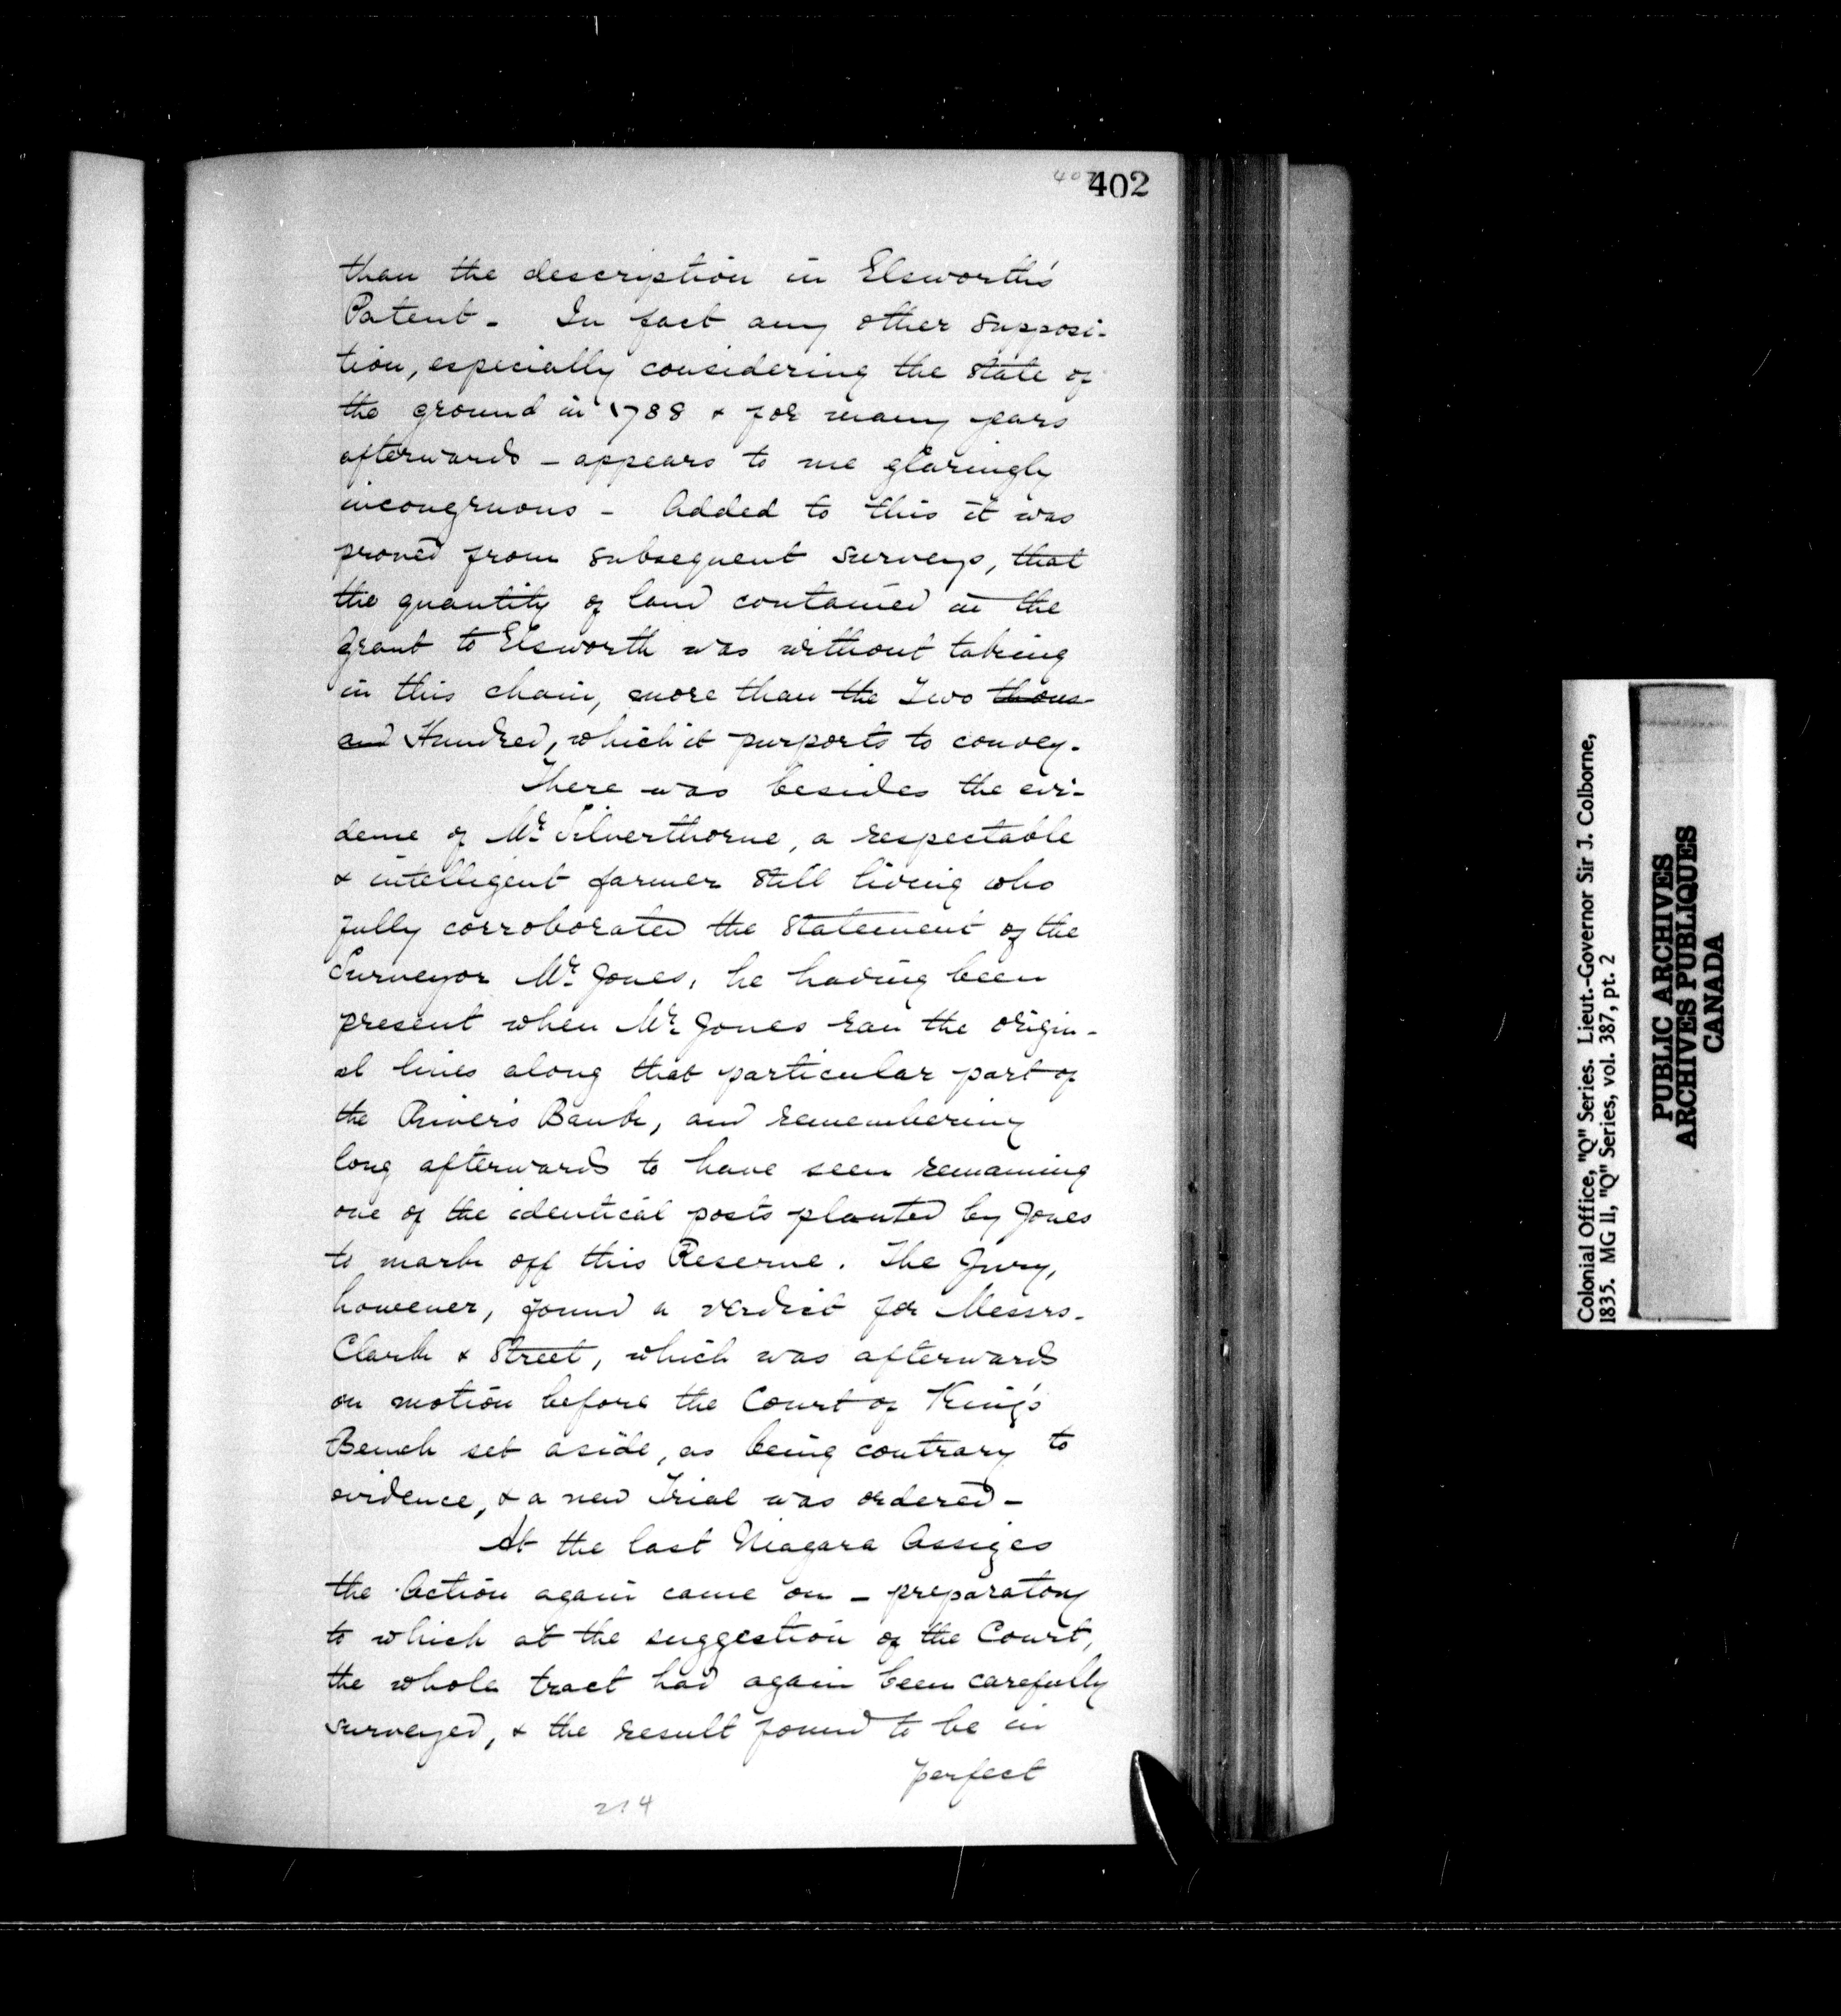 402
than the description in Elsworth's
Patent - In fact any other supposi-
tion, especially considering the state of
the ground in 1788 & for many years
afterwards - appears to me glaringly
incongruous - Added to this it was
proved from subsequent surveys, that
the quantity of land contained in the
grant to Elsworth was without taking
in this chain, more than the Two thous-
and Hundred, which it purports to convey.
There was besides the evi-
dence of Mr Silverthorne, a respectable
& intelligent farmer still living who
fully corroborated the statement of the
Surveyor Mr Jones, he having been
present when Mr Jones ran the origin-
al lines along that particular part of
the River's Bank, and remembering
long afterwards to have seen remaining
one of the identical posts planted by Jones
to mark off this Reserve. The Jury,
however, found a verdict for Messrs.
Clark & Street, which was afterwards
on motion before the Court of King's
Bench set aside, as being contrary to
evidence, & a new Trial was ordered -
At the last Niagara Assizes
the Action again came on - preparatory
to which at the suggestion of the Court,
the whole tract had again been carefully
surveyed, & the result found to be in
perfect
214
Colonial Office, "Q" Series. Lieut.-Governor Sir J. Colborne,
1835. MG 11, "Q" Series, vol. 387, pt. 2
PUBLIC ARCHIVES
ARCHIVES PUBLIQUES
CANADA